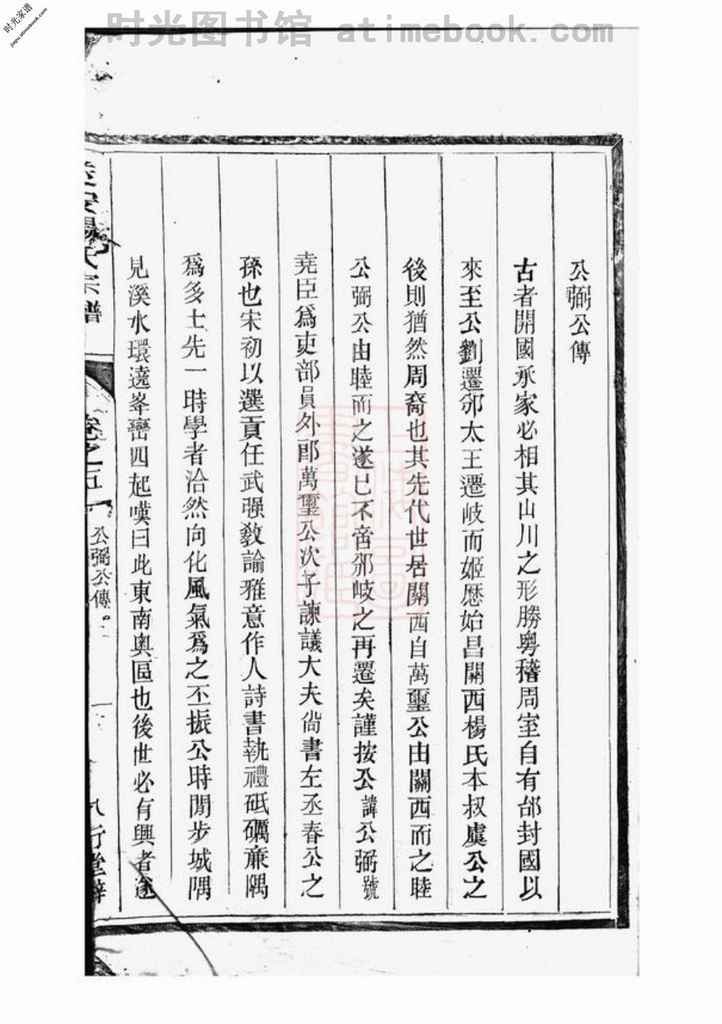 时光图书馆 atimebook.com
时光家谱
jiapu.atimebook.com
公弼公傳
古者開國承家必相其山川之形勝粵稽周室自有邰封國以
來至公劉遷邠太王遷岐而姬歷始昌關西楊氏本叔虞公之
後則猶然周裔也其先代世居關西自萬璽公由關西而之睦
公弼公由睦而之遂已不啻邠岐之再遷矣謹按公諱公弼號
堯臣爲吏部員外郎萬璽公次子諫議大夫尚書左丞春公之
孫也宋初以選貢任武强敎諭雅意作人詩書執禮砥礪亷隅
爲多士先一時學者洽然向化風氣爲之丕振公時閒步城隅
見溪水環遶峯巒四起嘆曰此東南奧區也後世必有興者遂
氏宗譜
卷之五
公弼公傳
一
八行堂